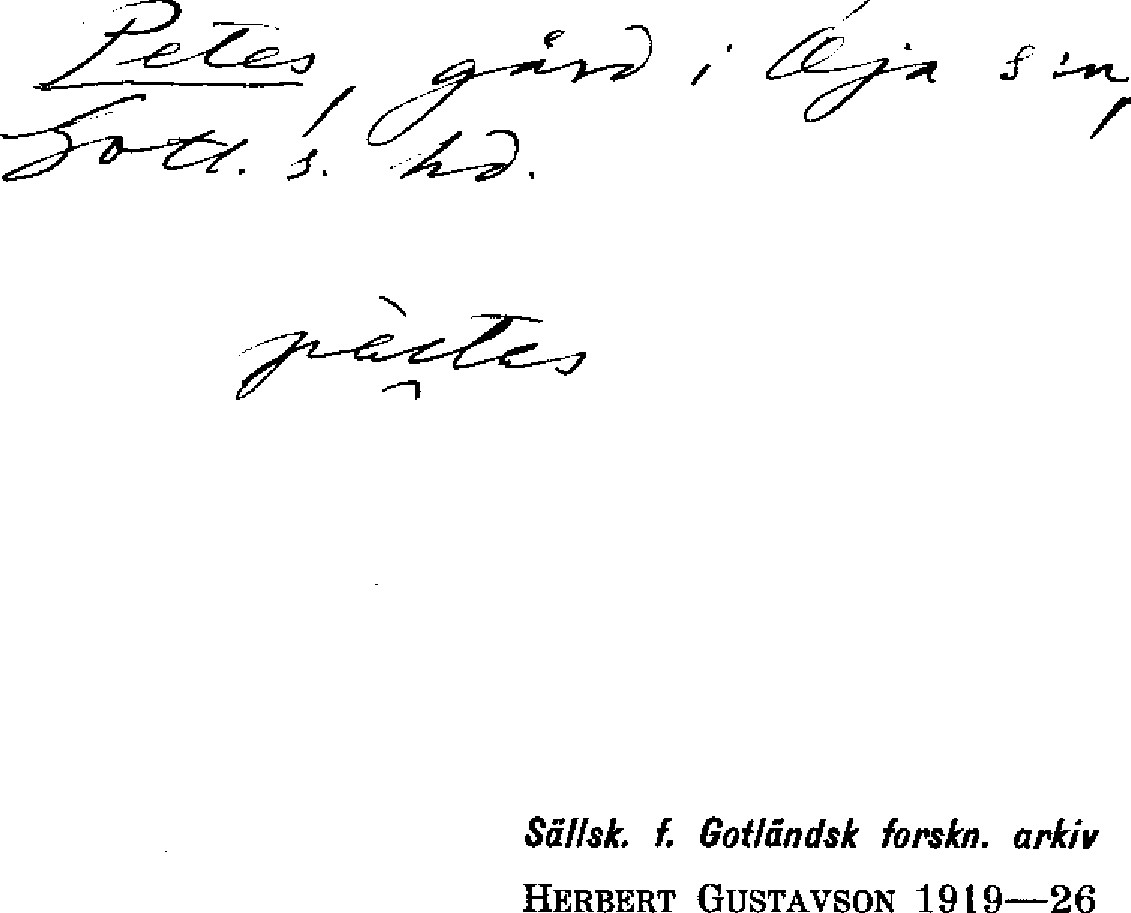 Petes, gård i Öja s:n,
Gotl. s. hd.
pèetes
Sällsk. f. Gotländsk forskn. arkiv
HERBERT GUSTAVSON 1919—26